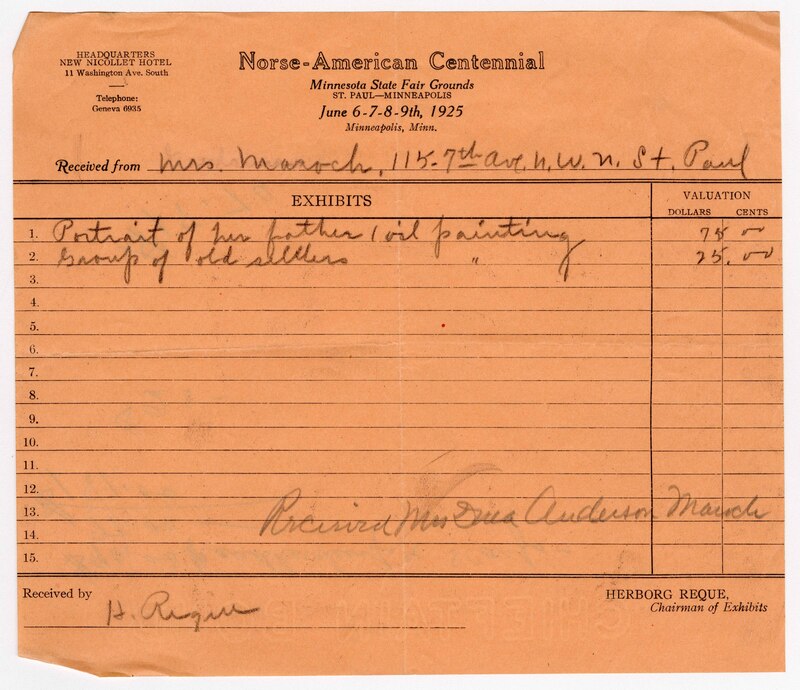 HEADQUARTERS
NEW NICOLLET HOTEL
11 Washington Ave. South
Telephone:
Geneva 6935
Norse-American Centennial
Minnesota State Fair Grounds
ST. PAUL—MINNEAPOLIS
June 6-7-8-9th, 1925
Minneapolis, Minn.
Received from Mrs. Maroch, 115-7th Ave. N. W. N. St. Paul
EXHIBITS
VALUATION
DOLLARS CENTS
1. Portrait of her father / oil painting 75 00
2. Group of old settlers " 25.00
3.
4.
5.
6.
7.
8.
9.
10.
11.
12.
13. Received Mrs Anderson Maroch
14.
15.
Received by H. Reque
HERBORG REQUE,
Chairman of Exhibits